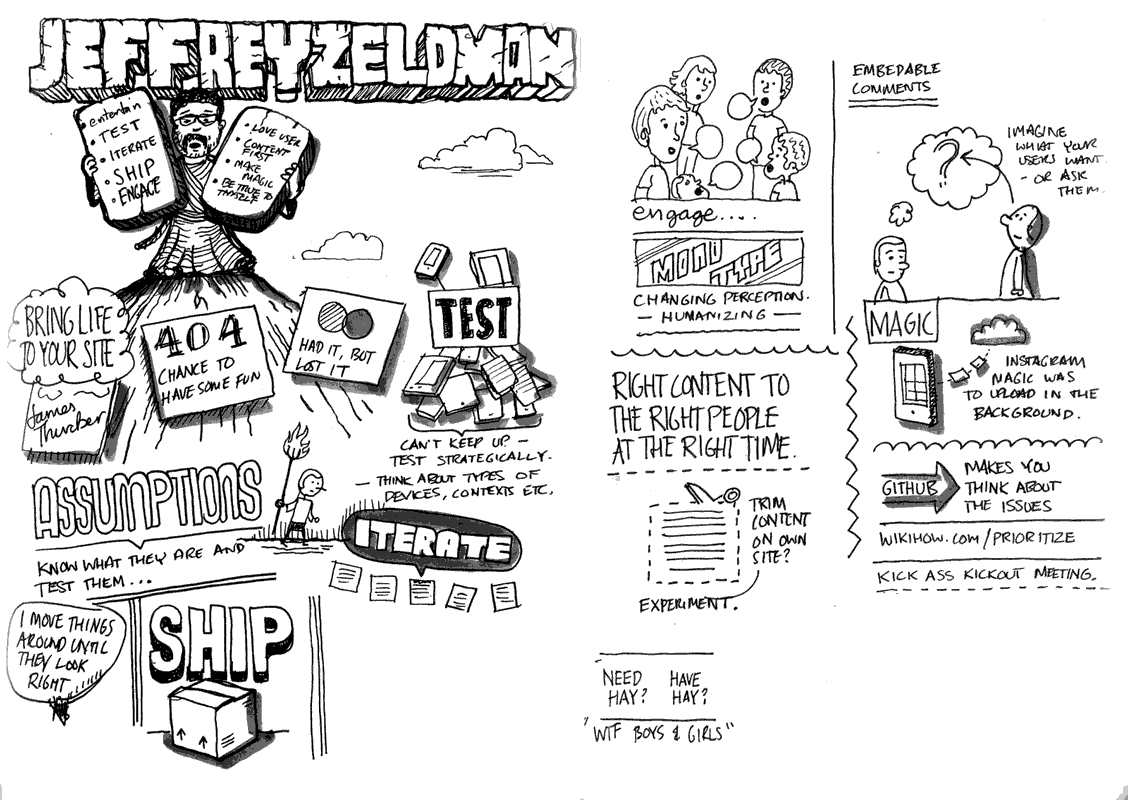 JEFFREY ZELDMAN
• entertain
• TEST
• ITERATE
• SHIP
• ENGAGE
• LOVE USER
• CONTENT
FIRST
• MAKE
MAGIC
• BE TRUE TO
THYSELF
BRING LIFE
TO YOUR SITE
James
Thurber
404
CHANCE TO
HAVE SOME FUN
HAD IT, BUT
LOST IT
TEST
CAN'T KEEP UP –
TEST STRATEGICALLY.
– THINK ABOUT TYPES OF
DEVICES, CONTEXTS ETC.
ASSUMPTIONS
KNOW WHAT THEY ARE AND
TEST THEM...
ITERATE
I MOVE THINGS
AROUND UNTIL
THEY LOOK
RIGHT
SHIP
engage....
MONO
TYPE
CHANGING PERCEPTION.
— HUMANIZING —
RIGHT CONTENT TO
THE RIGHT PEOPLE
AT THE RIGHT TIME.
TRIM
CONTENT
ON OWN
SITE?
EXPERIMENT.
NEED HAVE
HAY? HAY?
"WTF BOYS & GIRLS"
EMBEDABLE
COMMENTS
?
IMAGINE
WHAT YOUR
USERS WANT.
- OR ASK
THEM.
MAGIC
INSTAGRAM
MAGIC WAS
TO UPLOAD IN THE
BACKGROUND.
GITHUB
MAKES YOU
THINK ABOUT
THE ISSUES
WIKIHOW.COM/PRIORITIZE
KICK ASS KICKOUT MEETING.